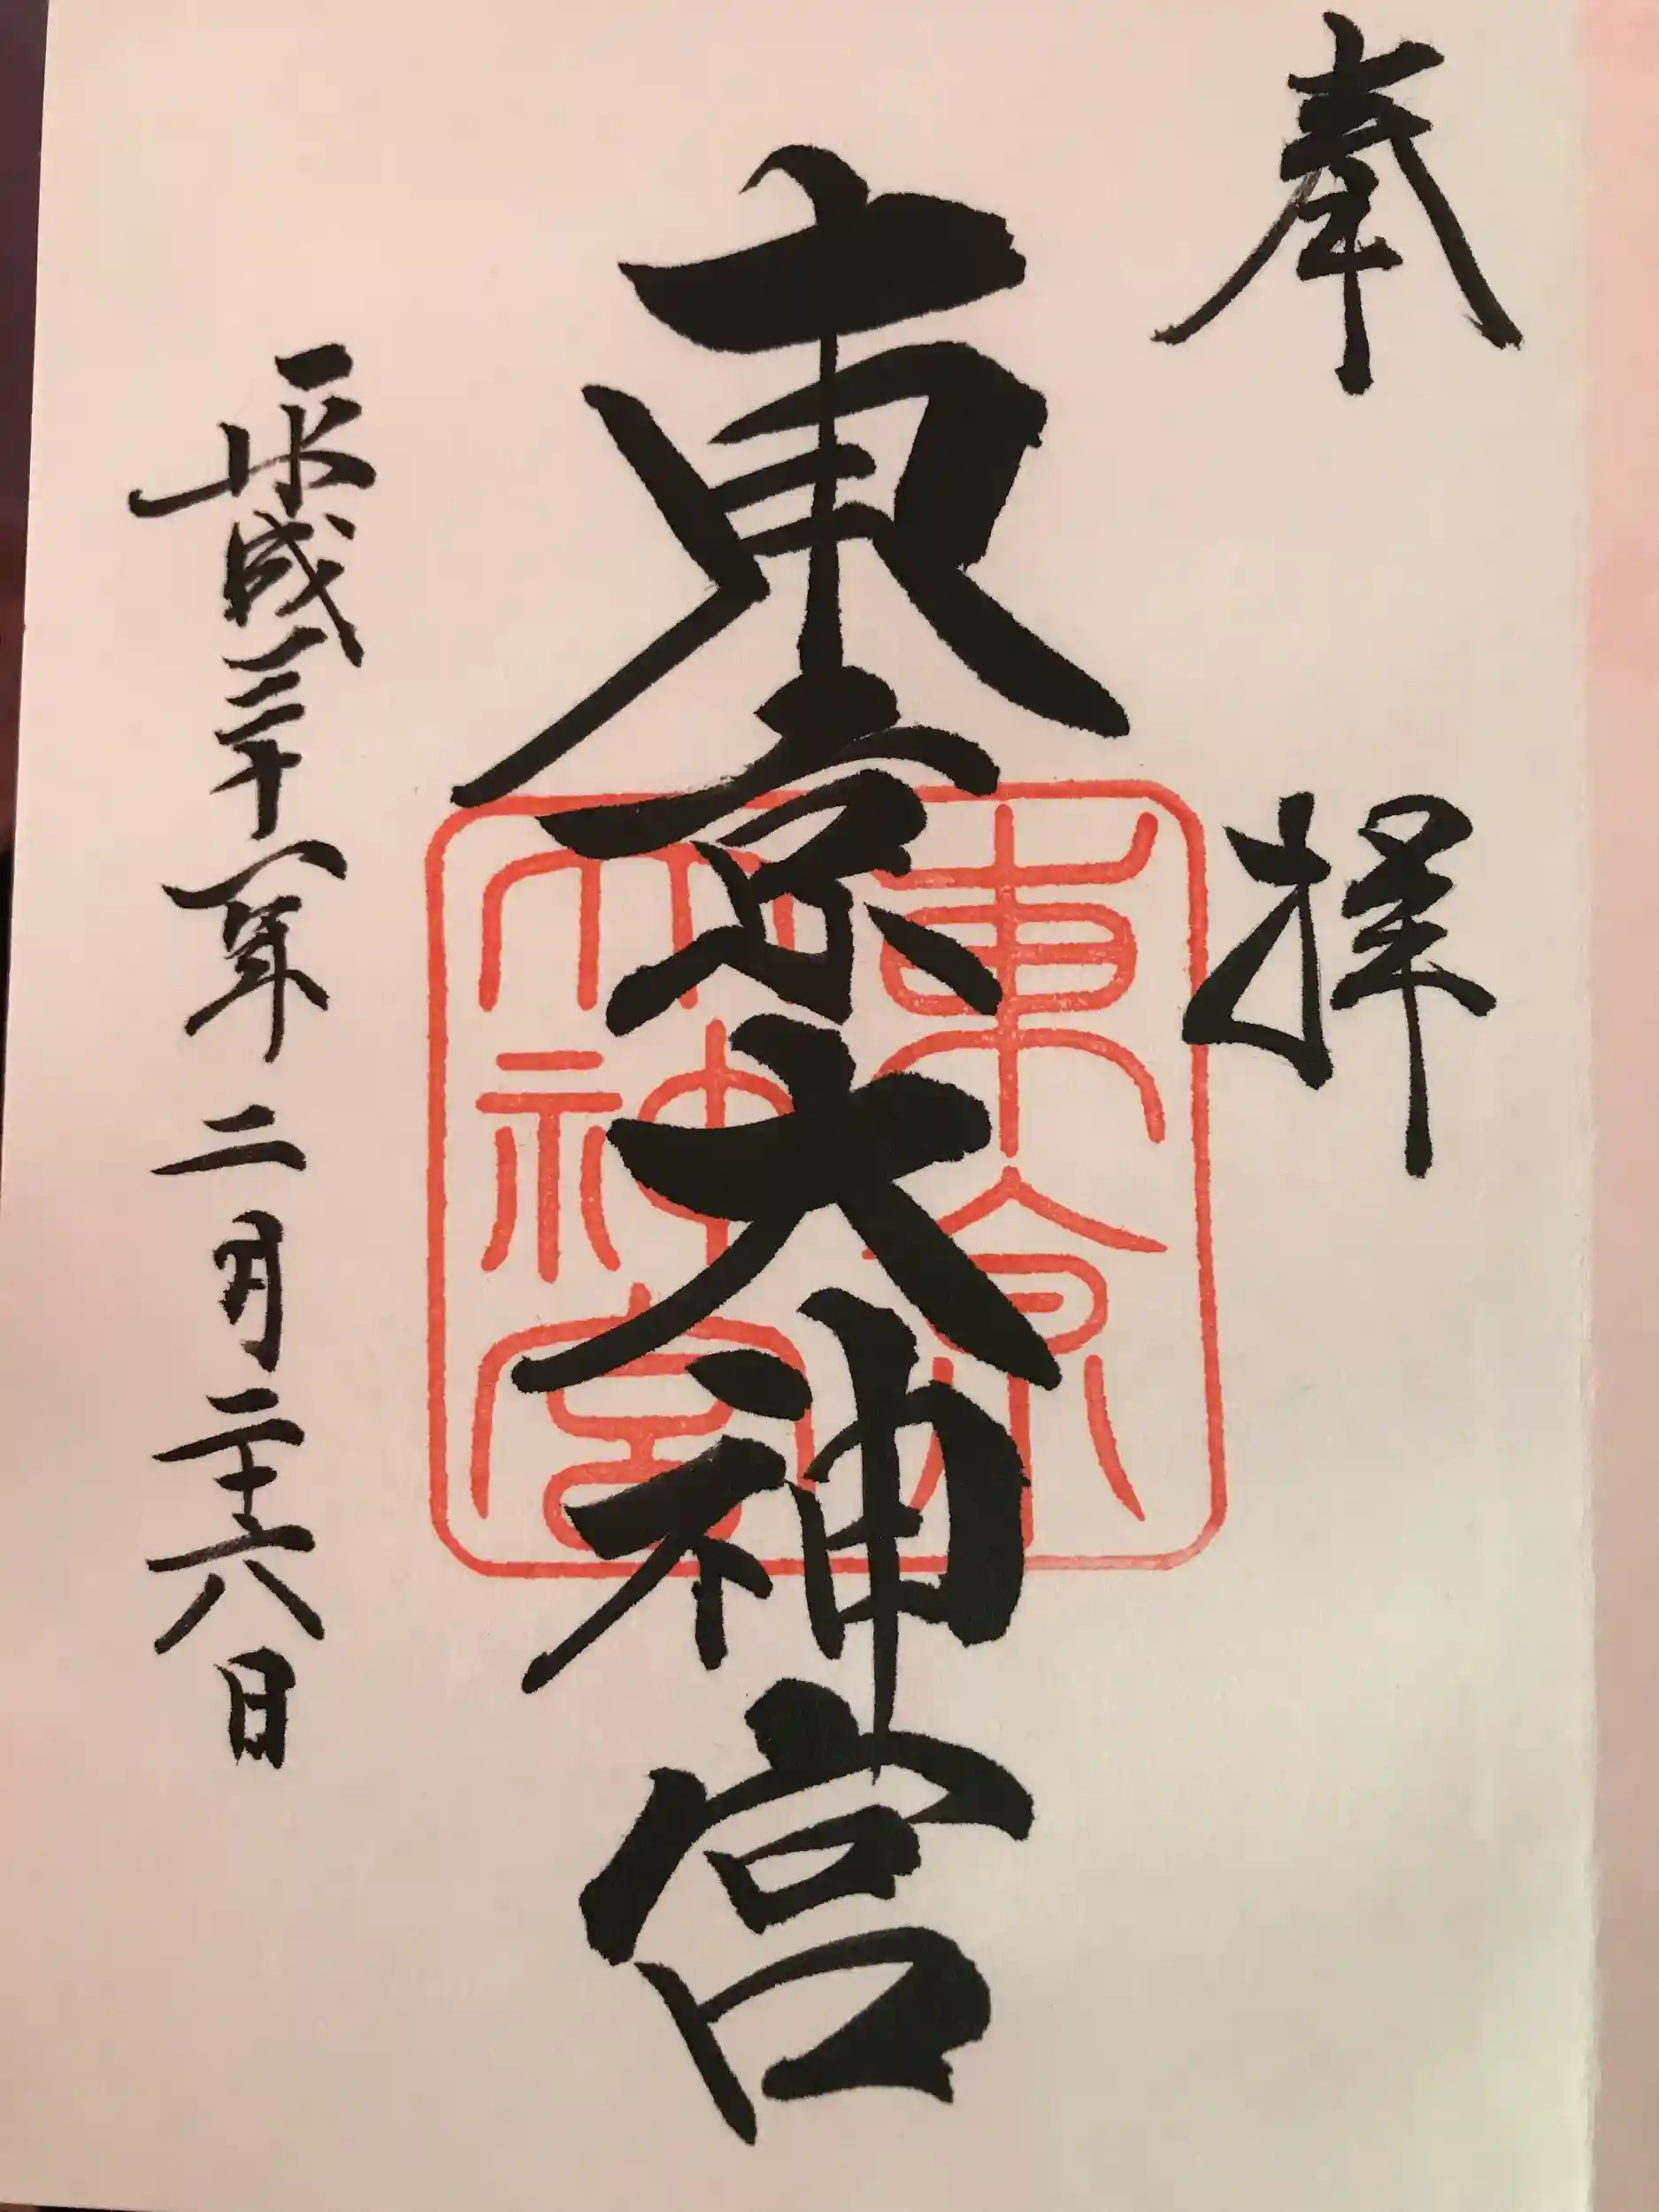 奉拝
東京大神宮
東京
大神宮
平成三十一年二月二十六日